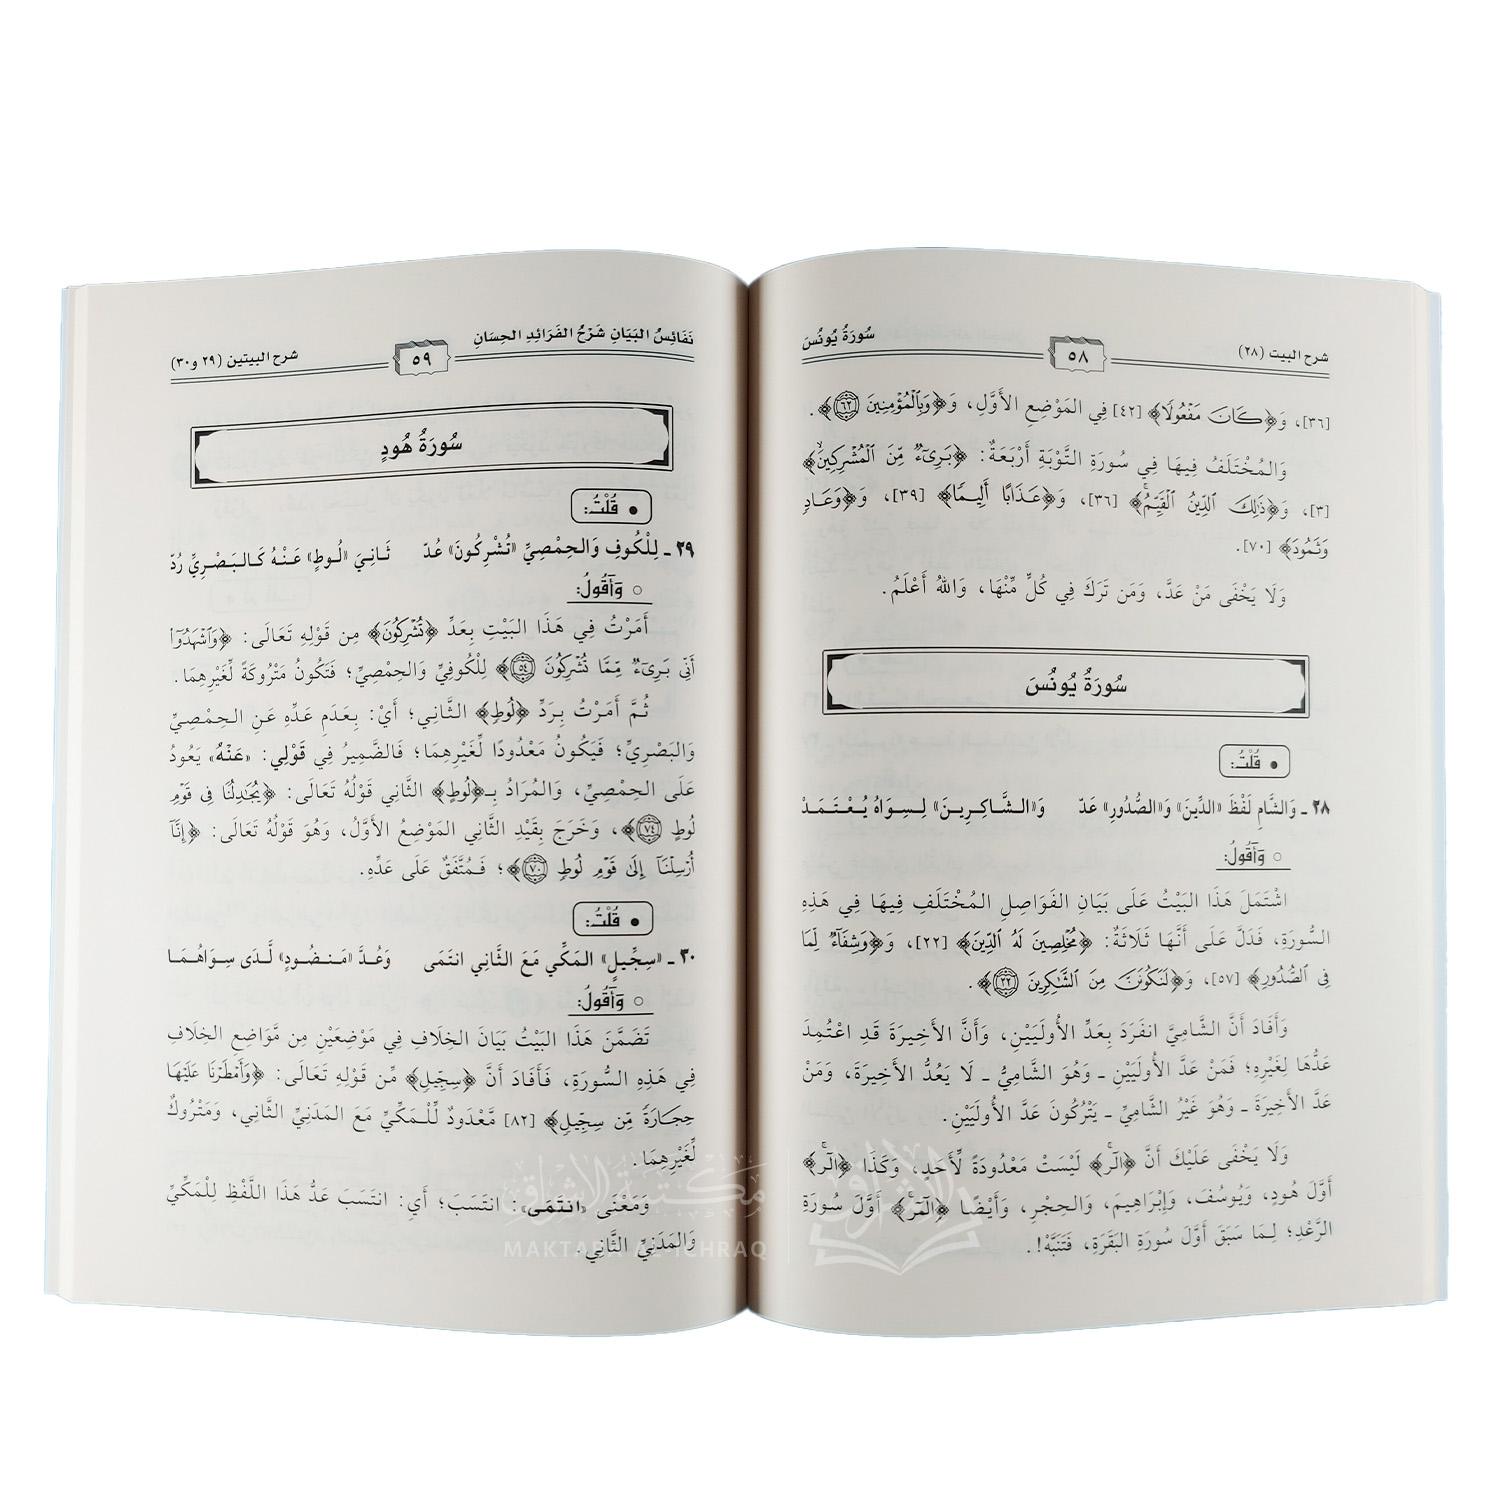 شرح البيت (٢٨)
٥٨
سُورَةُ يُونُسَ
[٣٦]، وَ﴿كَانَ مَفْعُولًا﴾ [٤٢] فِي المَوْضِعِ الأَوَّلِ، وَ﴿وَبِالْمُؤْمِنِينَ ٦٢﴾.
وَالمُخْتَلَفُ فِيهَا فِي سُورَةِ التَّوْبَةِ أَرْبَعَةٌ: ﴿بَرِيٓءٌ مِّنَ الْمُشْرِكِينَ﴾
[٣]، وَ﴿ذَٰلِكَ الدِّينُ الْقَيِّمُ﴾ [٣٦]، وَ﴿عَذَابًا أَلِيمًا﴾ [٣٩]، وَ﴿وَعَادٍ
وَثَمُودَ﴾ [٧٠].
وَلَا يَخْفَى مَنْ عَدَّ، وَمَن تَرَكَ فِي كُلٍّ مِّنْهَا، وَاللهُ أَعْلَمُ.
سُورَةُ يُونُسَ
• قُلْتُ:
٢٨ ـ وَالشَّامِ لَفْظَ «الدِّينَ» وَ«الصُّدُورِ» عَدّ وَ«الشَّاكِرِينَ» لِسِوَاهُ يُعْتَمَدْ
○ وَأَقُولُ:
اشْتَمَلَ هَذَا البَيْتُ عَلَى بَيَانِ الفَوَاصِلِ المُخْتَلَفِ فِيهَا فِي هَذِهِ
السُّورَةِ، فَدَلَّ عَلَى أَنَّهَا ثَلَاثَةٌ: ﴿مُخْلِصِينَ لَهُ الدِّينَ﴾ [٢٢]، وَ﴿وَشِفَآءٌ لِّمَا
فِي الصُّدُورِ﴾ [٥٧]، وَ﴿لَنَكُونَنَّ مِنَ الشَّٰكِرِينَ ٢٢﴾.
وَأَفَادَ أَنَّ الشَّامِيَّ انفَرَدَ بِعَدِّ الأُولَيَيْنِ، وَأَنَّ الأَخِيرَةَ قَدِ اعْتُمِدَ
عَدُّهَا لِغَيْرِهِ؛ فَمَنْ عَدَّ الأُولَيَيْنِ ـ وَهُوَ الشَّامِيُّ ـ لَا يَعُدُّ الأَخِيرَةَ، وَمَنْ
عَدَّ الأَخِيرَةَ ـ وَهُوَ غَيْرُ الشَّامِيِّ ـ يَتْرُكُونَ عَدَّ الأُولَيَيْنِ.
وَلَا يَخْفَى عَلَيْكَ أَنَّ ﴿الٓر﴾ لَيْسَتْ مَعْدُودَةً لِّأَحَدٍ، وَكَذَا ﴿الٓر﴾
أَوَّلَ هُودٍ، وَيُوسُفَ، وَإِبْرَاهِيمَ، وَالحِجْرِ، وَأَيْضًا ﴿الٓمٓر﴾ أَوَّلَ سُورَةِ
الرَّعْدِ؛ لِمَا سَبَقَ أَوَّلَ سُورَةِ البَقَرَةِ، فَتَنَبَّهْ!.
نَفَائِسُ البَيَانِ شَرْحُ الفَرَائِدِ الحِسَانِ
٥٩
شرح البيتين (٢٩ و٣٠)
سُورَةُ هُودٍ
• قُلْتُ:
٢٩ ـ لِلْكُوفِ وَالحِمْصِيِّ «تُشْرِكُونَ» عُدّ ثَانِيَ «لُوطٍ» عَنْهُ كَالبَصْرِيِّ رُدّ
○ وَأَقُولُ:
أَمَرْتُ فِي هَذَا البَيْتِ بِعَدِّ ﴿تُشْرِكُونَ﴾ مِن قَوْلِهِ تَعَالَى: ﴿وَاشْهَدُوٓا۟
أَنِّي بَرِيٓءٌ مِّمَّا تُشْرِكُونَ ٥٤﴾ لِلْكُوفِيِّ وَالحِمْصِيِّ؛ فَتَكُونُ مَتْرُوكَةً لِّغَيْرِهِمَا.
ثُمَّ أَمَرْتُ بِرَدِّ ﴿لُوطٍ﴾ الثَّانِي؛ أَيْ: بِعَدَمِ عَدِّهِ عَنِ الحِمْصِيِّ
وَالبَصْرِيِّ؛ فَيَكُونُ مَعْدُودًا لِّغَيْرِهِمَا؛ فَالضَّمِيرُ فِي قَوْلِي: «عَنْهُ» يَعُودُ
عَلَى الحِمْصِيِّ، وَالمُرَادُ بِـ﴿لُوطٍ﴾ الثَّانِي قَوْلُهُ تَعَالَى: ﴿يُجَٰدِلُنَا فِي قَوْمِ
لُوطٍ ٧٤﴾، وَخَرَجَ بِقَيْدِ الثَّانِي المَوْضِعُ الأَوَّلُ، وَهُوَ قَوْلُهُ تَعَالَى: ﴿إِنَّآ
أُرْسِلْنَآ إِلَىٰ قَوْمِ لُوطٍ ٧٠﴾؛ فَمُتَّفَقٌ عَلَى عَدِّهِ.
• قُلْتُ:
٣٠ ـ «سِجِّيلٍ» المَكِّي مَعَ الثَّانِي انتَمَى وَعُدَّ «مَنضُودٍ» لَّدَى سِوَاهُمَا
○ وَأَقُولُ:
تَضَمَّنَ هَذَا البَيْتُ بَيَانَ الخِلَافِ فِي مَوْضِعَيْنِ مِن مَّوَاضِعِ الخِلَافِ
فِي هَذِهِ السُّورَةِ، فَأَفَادَ أَنَّ ﴿سِجِّيلٍ﴾ مِّن قَوْلِهِ تَعَالَى: ﴿وَأَمْطَرْنَا عَلَيْهَا
حِجَارَةً مِّن سِجِّيلٍ﴾ [٨٢] مَّعْدُودٌ لِّلْمَكِّيِّ مَعَ المَدَنِيِّ الثَّانِي، وَمَتْرُوكٌ
لِّغَيْرِهِمَا.
وَمَعْنَى «انتَمَى»: انتَسَبَ؛ أَيِ: انتَسَبَ عَدُّ هَذَا اللَّفْظِ لِلْمَكِّيِّ
وَالمَدَنِيِّ الثَّانِي.
مكتبة الإشراق
MAKTABA AL-ICHRAQ
الإشراق